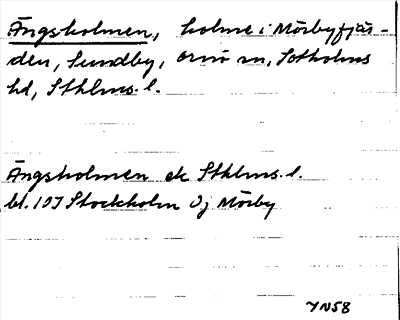 Ängsholmen, holme i Mörbyfjär-
den, Sundby, Ornö sn, Sotholms
hd, Sthlms l.
Ängsholmen ek Sthlms. l.
bl. 10J Stockholm Oj Mörby
YN58